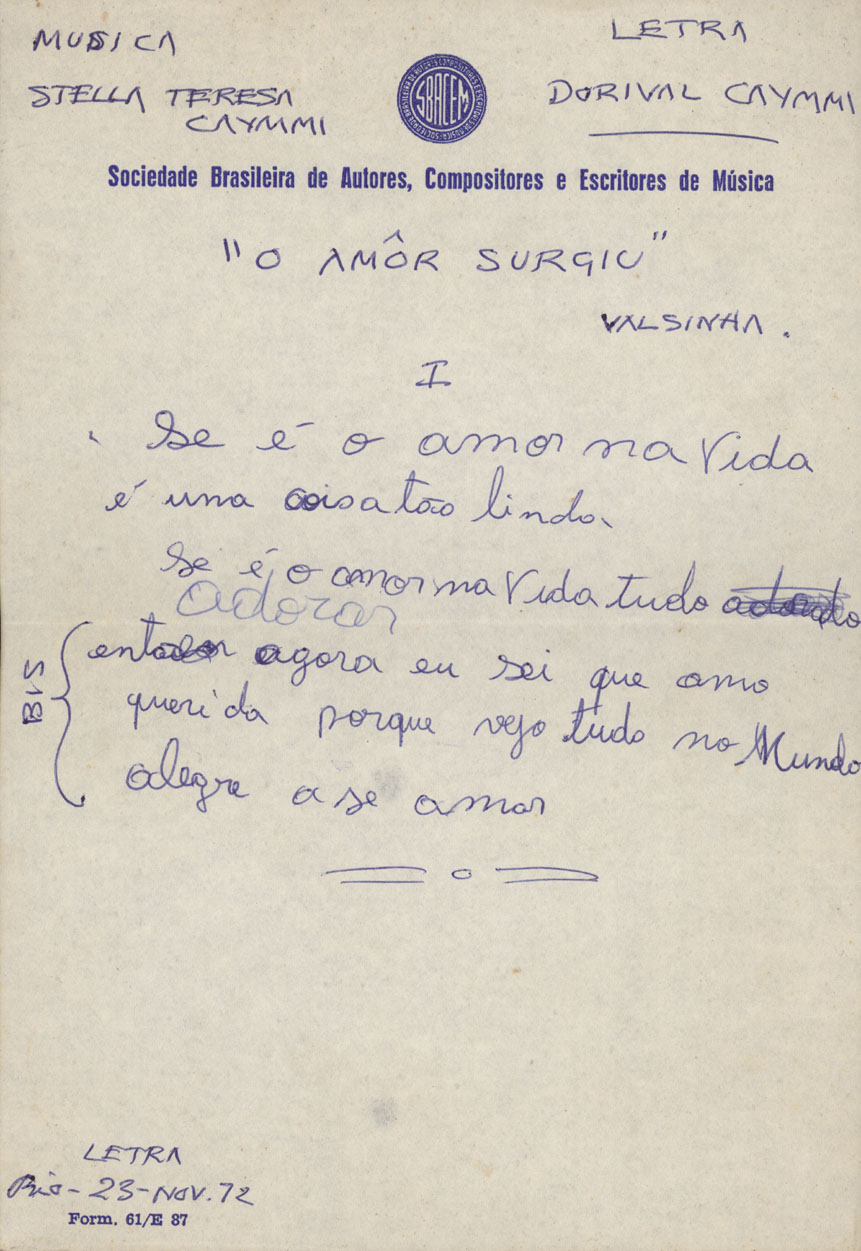 MUSICA
STELLA TERESA
CAYMMI
LETRA
DORIVAL CAYMMI
SBACEM
Sociedade Brasileira de Autores, Compositores e Escritores de Música
"O AMÔR SURGIU"
VALSINHA.
I
Se é o amor na Vida
é uma coisa tão linda
Se é o amor na Vida tudo
adorar
BIS
agora eu sei que amo
querida porque vejo tudo no Mundo
alegre a se amor
LETRA
Rio-23-NOV.72
Form. 61/E 37